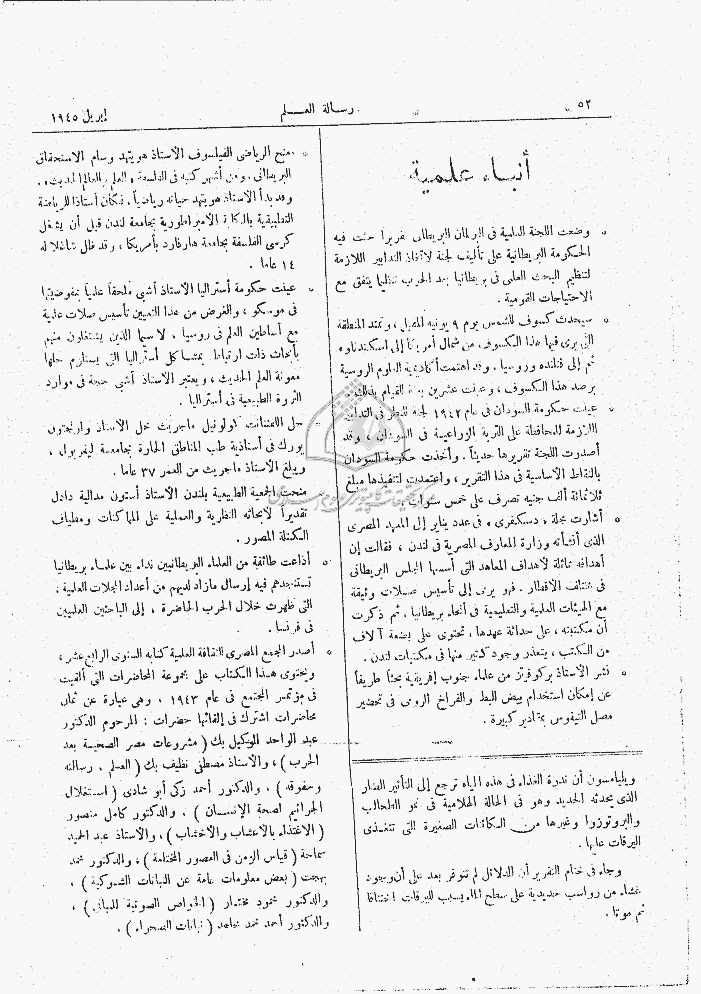 ٥٢
رسالة العلم
إبريل ١٩٤٥
أنباء علمية
• وضعت اللجنة العلمية فى البرلمان البريطانى تقريراً حثت فيه
الحكومة البريطانية على تأليف لجنة لاتخاذ التدابير اللازمة
لتنظيم البحث العلمى فى بريطانيا بعد الحرب تنظيما يتفق مع
الاحتياجات القومية .
• سيحدث كسوف للشمس يوم ٩ يونيه المقبل ، وتمتد المنطقة
التى يرى فيها هذا الكسوف من شمال أمريكا إلى اسكندناوه
ثم إلى فنلنده وروسيا . وقد اهتمت أكاديمية العلوم الروسية
برصد هذا الكسوف ، وعينت عشرين بعثة للقيام بذلك .
• عينت حكومة السودان فى عام ١٩٤٢ لجنة للنظر فى التدابير
اللازمة للمحافظة على التربة الزراعية فى السودان ، وقد
أصدرت اللجنة تقريرها حديثاً . وأخذت حكومة السودان
بالنقاط الأساسية فى هذا التقرير ، واعتمدت لتنفيذها مبلغ
ثلاثمائة ألف جنيه تصرف على خمس سنوات .
• أشارت مجلة « دسكفرى » فى عدد يناير إلى المعهد المصرى
الذى أنشأته وزارة المعارف المصرية فى لندن ، فقالت إن
أهدافه مماثلة لأهداف المعاهد التى أسسها المجلس البريطانى
فى مختلف الأقطار . فهو يرمى إلى تأسيس صلات وثيقة
مع الهيئات العلمية والتعليمية فى أنحاء بريطانيا . ثم ذكرت
أن مكتبته ، على حداثة عهدها ، تحتوى على بضعة آلاف
من الكتب ، يتعذر وجود كثير منها فى مكتبات لندن .
• نشر الأستاذ بركوفرتز من علماء جنوب إفريقية بحثاً طريفاً
عن إمكان استخدام بيض البط والفراخ الرومى فى تحضير
مصل التيفوس بمقادير كبيرة .
ويليامسون أن ندرة الغذاء فى هذه المياه ترجع إلى التأثير الضار
الذى يحدثه الحديد وهو فى الحالة الهلامية فى نمو الطحالب
والبروتوزوا وغيرها من الكائنات الصغيرة التى تتغذى
اليرقات عليها .
وجاء فى ختام التقرير أن الدلائل لم تتوفر بعد على أن وجود
غشاء من رواسب حديدية على سطح الماء يسبب لليرقات اختناقا
ثم موتا .
• منح الرياضى الفيلسوف الأستاذ هويتهد وسام الاستحقاق
البريطانى . ومن أشهر كتبه فى الفلسفة « العلم والعالم الحديث » .
وقد بدأ الأستاذ هويتهد حياته رياضياً . فكان أستاذاً للرياضة
التطبيقية بالكلية الامبراطورية بجامعة لندن قبل أن يشغل
كرسى الفلسفة بجامعة هارفارد بأمريكا ، وقد ظل شاغلا له
١٤ عاما .
• عينت حكومة أستراليا الأستاذ أشبى ملحقاً علمياً بمفوضيتها
فى موسكو ، والغرض من هذا التعيين تأسيس صلات علمية
مع أساطين العلم فى روسيا . لا سيما الذين يشتغلون منهم
بأبحاث ذات ارتباط بمشاكل أستراليا التى يستلزم حلها
معونة العلم الحديث ، ويعتبر الأستاذ أشبى حجة فى موارد
الثروة الطبيعية فى أستراليا .
• حل اللفتنانت كولونيل ماجريث محل الأستاذ وارنجتون
يورك فى أستاذية طب المناطق الحارة بجامعة ليفربول ،
ويبلغ الأستاذ ماجريث من العمر ٣٧ عاما .
منحت الجمعية الطبيعية بلندن الأستاذ أستون مدالية دادل
تقديراً لأبحاثه النظرية والعملية على الماكنات ومطياف
الكتلة المصور .
• أذاعت طائفة من العلماء البريطانيين نداء بين علماء بريطانيا
تستنجدهم فيه إرسال ما زاد لديهم من أعداد المجلات العلمية ،
التى ظهرت خلال الحرب الحاضرة ، إلى الباحثين العلميين
فى فرنسا .
• أصدر المجمع المصرى للثقافة العلمية كتابه السنوى الرابع عشر ،
ويحتوى هذا الكتاب على مجموعة المحاضرات التى ألقيت
فى مؤتمر المجمع فى عام ١٩٤٣ . وهى عبارة عن ثمان
محاضرات اشترك فى إلقائها حضرات : المرحوم الدكتور
عبد الواحد الوكيل بك ( مشروعات مصر الصحية بعد
الحرب ) ، والأستاذ مصطفى نظيف بك ( العلم . رسالته
وحقوقه ) . والدكتور أحمد زكى أبو شادى ( استغلال
الجراثيم لصحة الإنسان ) . والدكتور كامل منصور
( الاغتذاء بالأعشاب والأخشاب ) ، والأستاذ عبد الحميد
سماحة ( قياس الزمن فى العصور المختلفة ) ، والدكتور محمد
بهجت ( بعض معلومات عامة عن النباتات الشوكية ) .
والدكتور محمود مختار ( الخواص الصوتية للمبانى ) ،
والدكتور أحمد محمد مجاهد ( نباتات الصحراء ) .